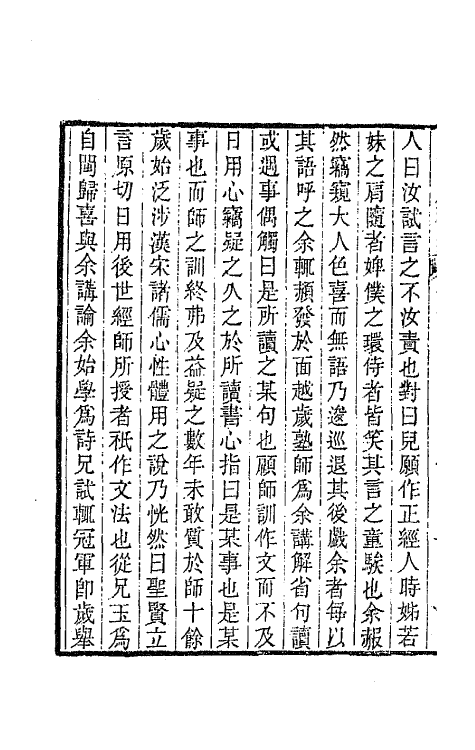 人曰汝試言之不汝責也對曰兒願作正經人時姊若
妹之肩隨者婢僕之環侍者皆笑其言之童騃也余赧
然竊窺大人色喜而無語乃逡巡退其後戲余者每以
其語呼之余輒頳發於面越歲塾師爲余講解省句讀
或遇事偶觸曰是所讀之某句也顧師訓作文而不及
日用心竊疑之久之於所讀書心指曰是某事也是某
事也而師之訓終弗及益疑之數年未敢質於師十餘
歲始泛涉漢宋諸儒心性體用之說乃恍然曰聖賢立
言原切日用後世經師所授者祇作文法也從兄玉爲
自閩歸喜與余講論余始學爲詩兄試輒冠軍卽歲舉